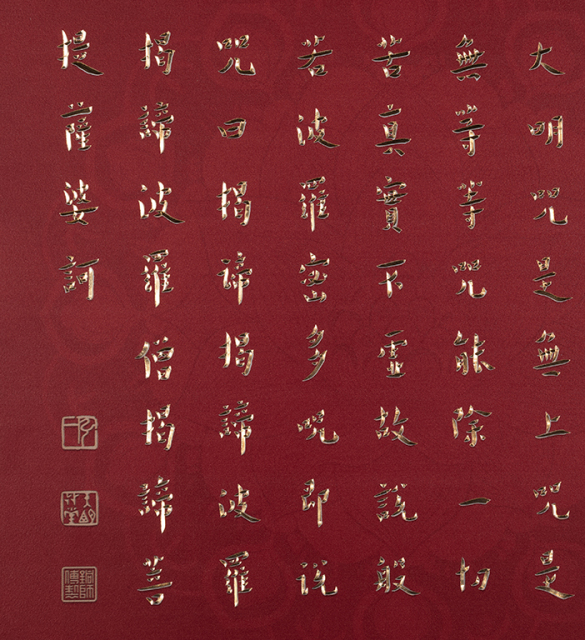 大明咒是無上咒是
無等等咒能除一切
苦真實不虛故說般
若波羅密多呪即説
咒曰揭諦揭諦波羅
揭諦波羅僧揭諦菩
提薩婆訶
銅師傅製